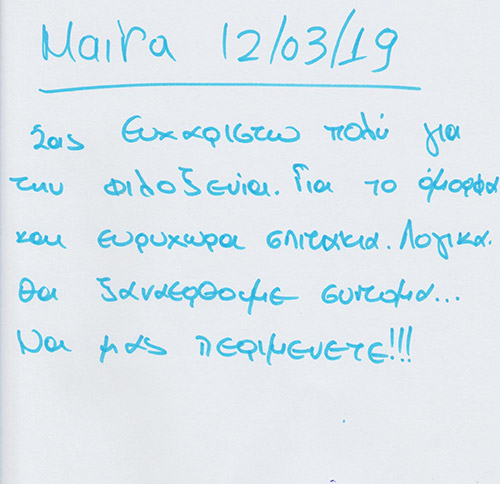 Μαιρα 12/03/19
Σας ευχαριστω πολύ για
την φιλοξενια. Για το όμορφα
και ευρυχωρα σπιτακια. Λογικα.
θα ξαναερθουμε συντομα...
Να μας περιμενετε!!!